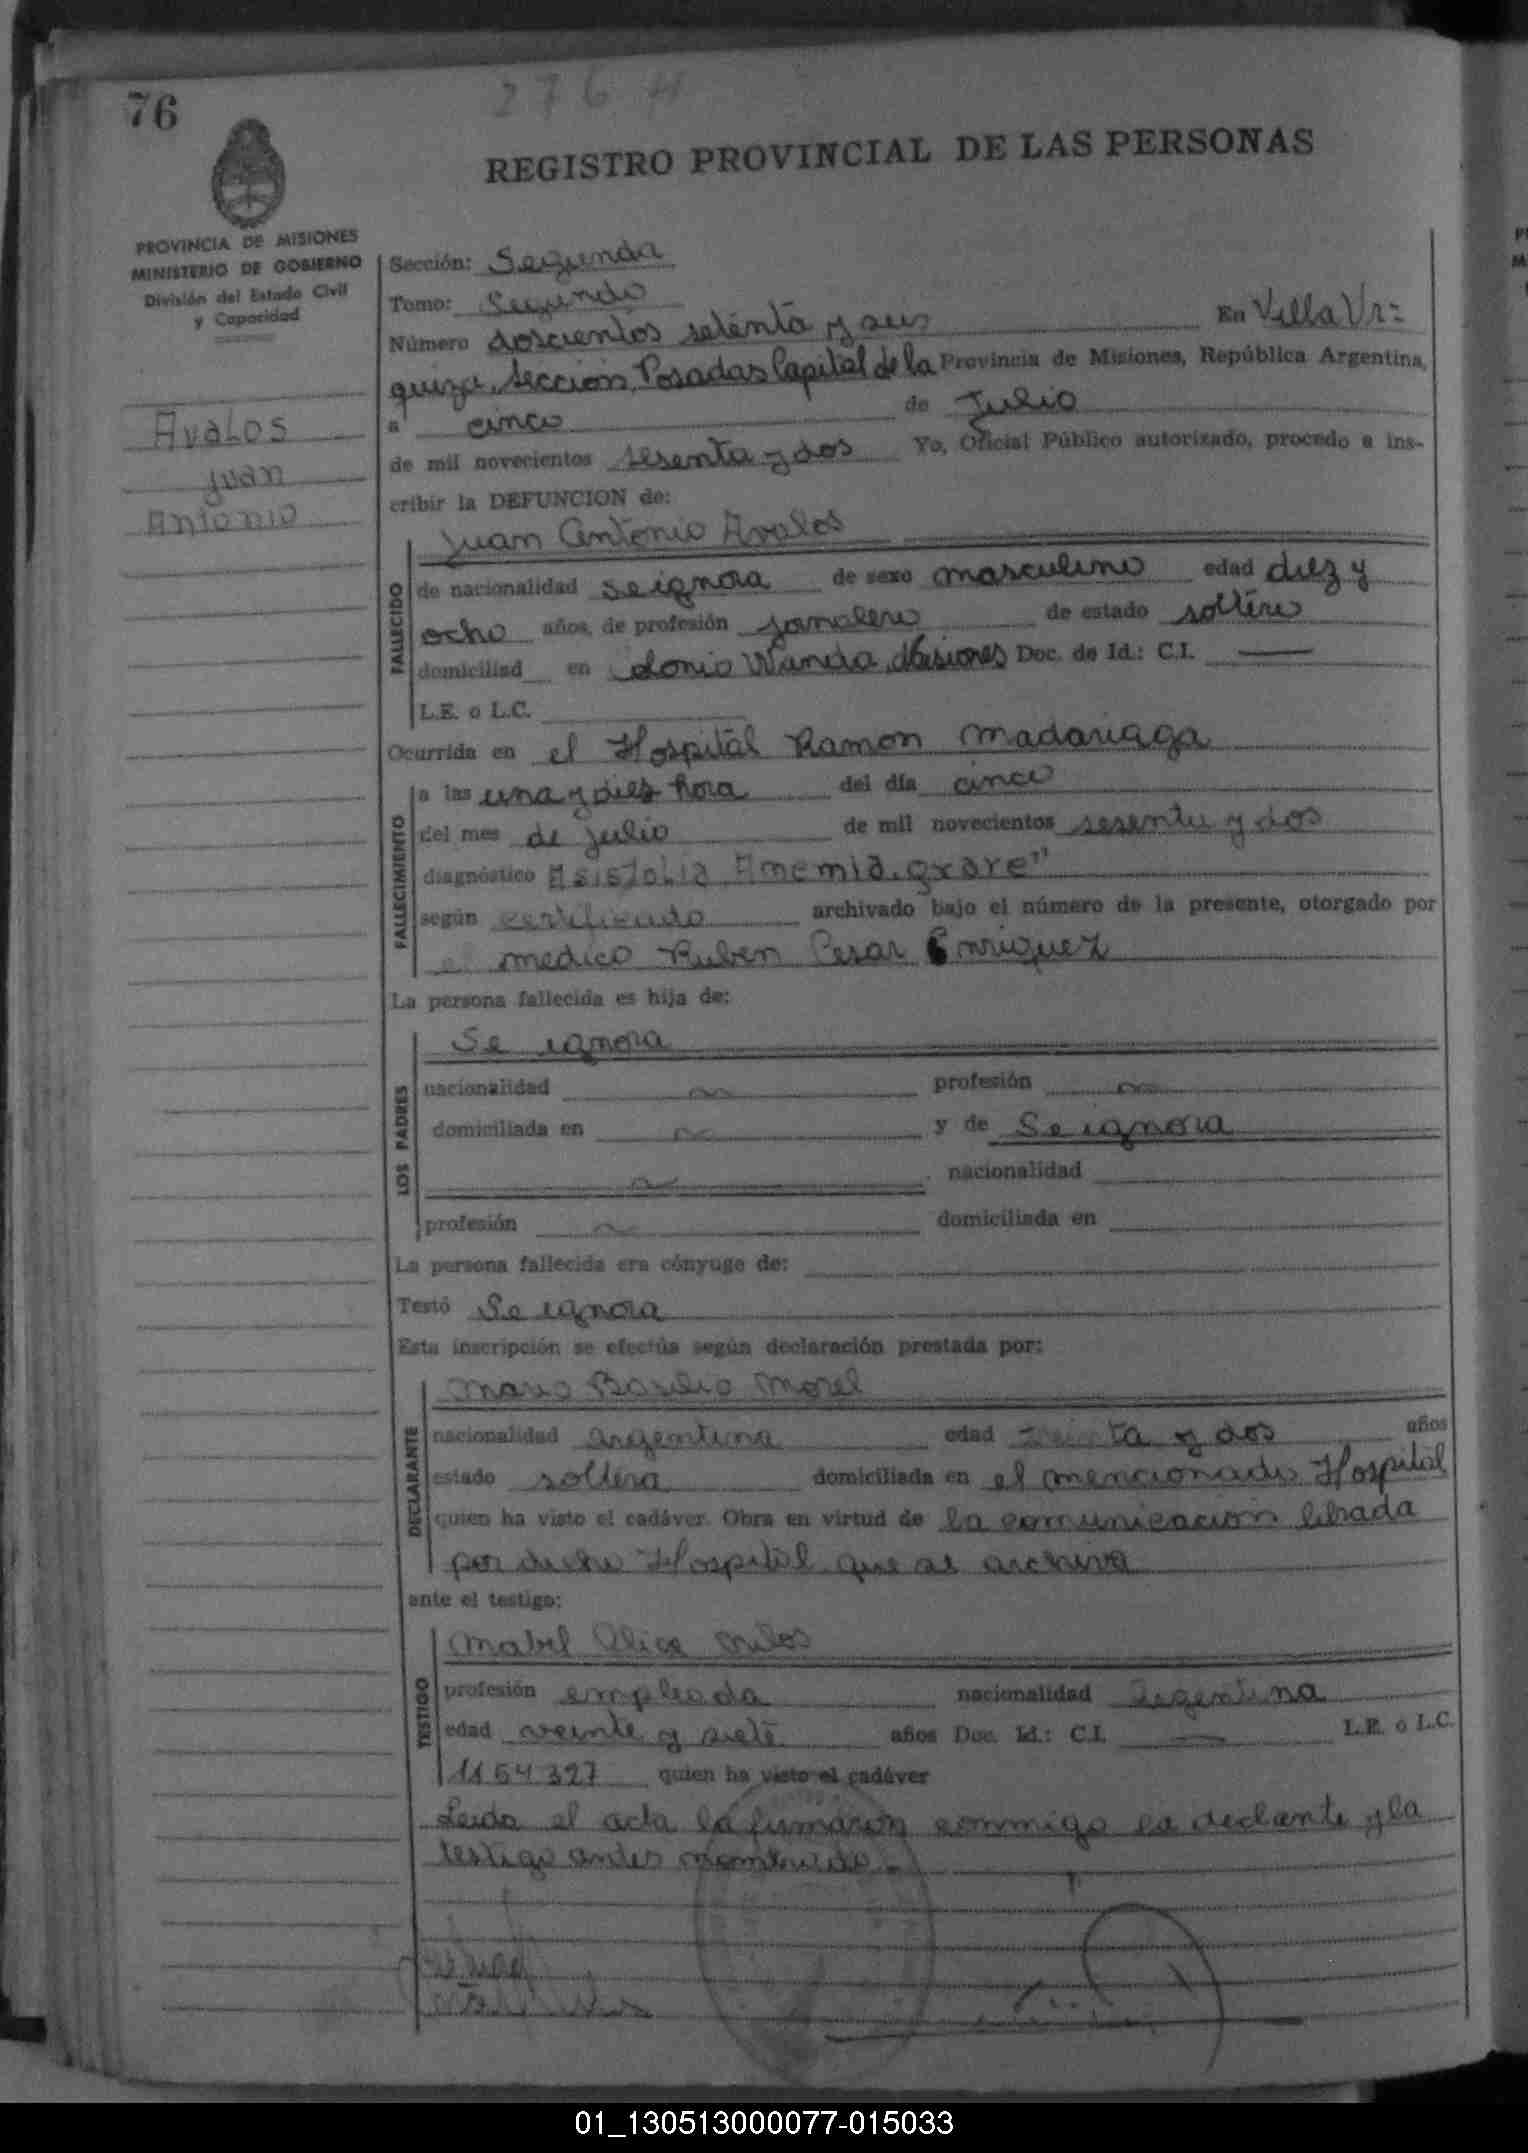 76
276 H
REGISTRO PROVINCIAL DE LAS PERSONAS
PROVINCIA DE MISIONES
MINISTERIO DE GOBIERNO
División del Estado Civil
y Capacidad
Avalos
Juan
Antonio
Sección: Segunda
Tomo: Segundo
Número doscientos setenta y seis En Villa Ur=
quiza, Sección Posadas Capital de la Provincia de Misiones, República Argentina,
a cinco de Julio
de mil novecientos sesenta y dos Yo, Oficial Público autorizado, procedo a ins-
cribir la DEFUNCION de:
Juan Antonio Avalos
FALLECIDO
de nacionalidad se ignora de sexo masculino edad diez y
ocho años, de profesión jornalero de estado soltero
domiciliad en Wanda, Misiones Doc. de Id.: C.I.
L.E. o L.C.
Ocurrida en el Hospital Ramon Madariaga
FALLECIMIENTO
a las una y diez hora del día cinco
del mes de julio de mil novecientos sesenta y dos
diagnóstico Asistolia Anemia grave"
según certificado archivado bajo el número de la presente, otorgado por
el medico Ruben Cesar Enriquez
La persona fallecida es hija de:
LOS PADRES
Se ignora
nacionalidad profesión
domiciliada en y de Se ignora
nacionalidad
profesión domiciliada en
La persona fallecida era cónyuge de:
Testó Se ignora
Esta inscripción se efectúa según declaración prestada por:
DECLARANTE
Mario Basilio Morel
nacionalidad argentina edad treinta y dos años
estado soltera domiciliada en el mencionado Hospital
quien ha visto el cadáver. Obra en virtud de la comunicación librada
por dicho Hospital que se archiva
ante el testigo:
TESTIGO
Mabel Alice
profesión empleada nacionalidad argentina
edad veinte y siete años Doc. Id.: C.I. L.E. o L.C.
1154327 quien ha visto el cadáver
Leida el acta la firmaron conmigo la declante y la
testigo antes
01_130513000077-015033